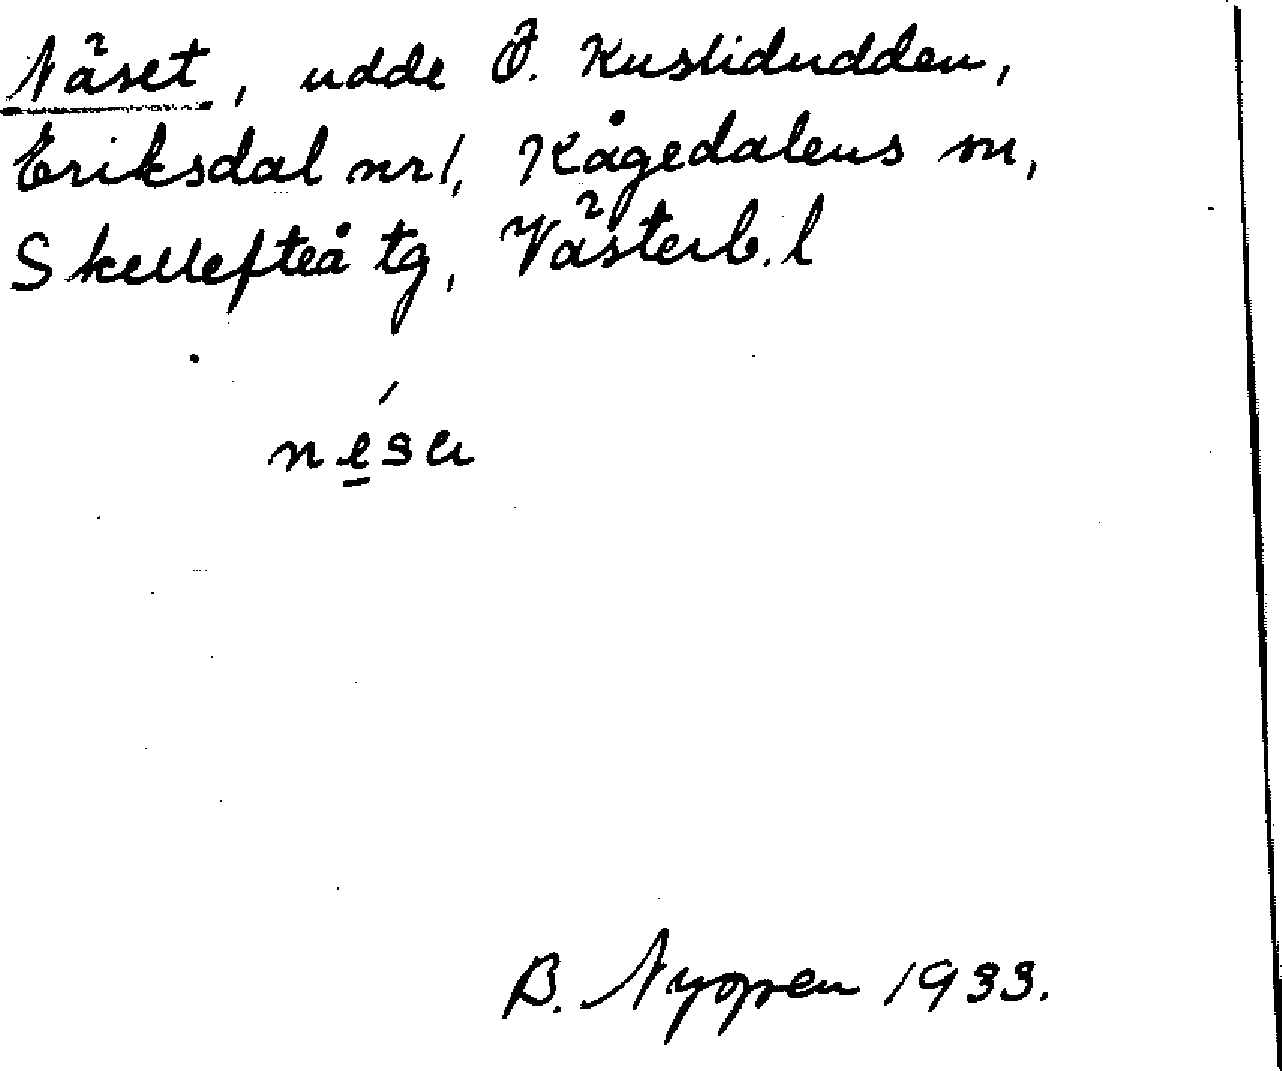 Näset, udde Ö. Kuslidudden,
Eriksdal nr 1, Kågedalens sn,
Skellefteå tg, Västerb. l
nésa
B. Nygren 1933.